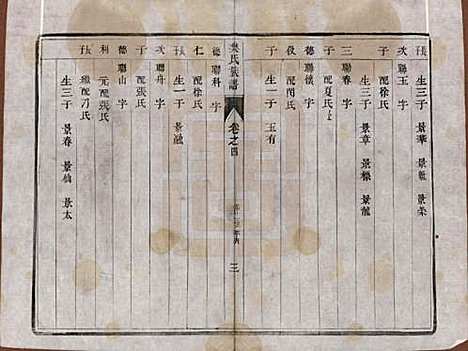 生三子 景華 景燕 景榮
次聯玉 字
子 配徐氏
生三子 景章 景標 景龍
三聯春 字
子 配夏氏
德聯懷 字
俊 配閃氏
子 生一子 玉有
吳氏族譜
卷之四
三
德聯科 字
仁 配徐氏
子 生一子 景融
次聯舟 字
子 配張氏
德聯山 字
利 元配張氏
子 繼配刀氏
生三子 景春 景仙 景太